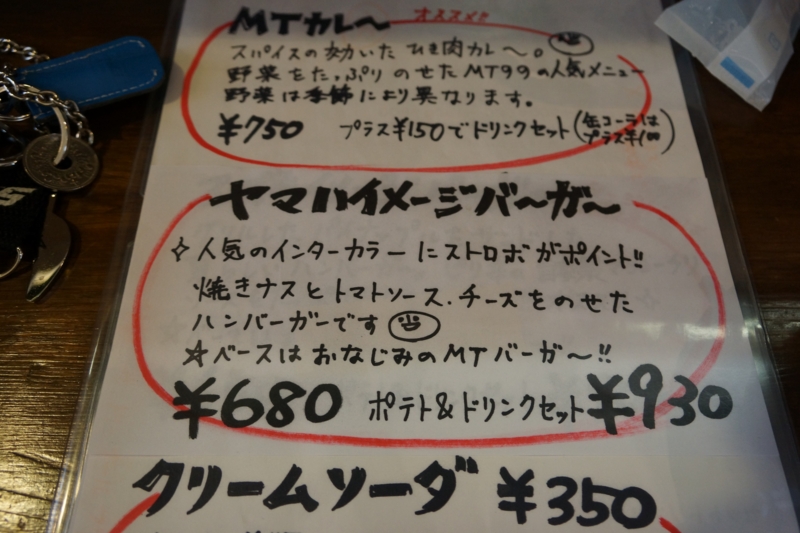 MTカレ〜 オススメ!!
スパイスの効いた ひき肉カレ〜。
野菜をたっぷりのせたMT99の人気メニュー
野菜は季節により異なります。
¥750 プラス¥150でドリンクセット(缶コーラはプラス¥100)
ヤマハイメージバ〜ガ〜
✧人気のインターカラーにストロボがポイント!!
焼きナスとトマトソース.チーズをのせた
ハンバーガーです
☆ベースはおなじみのMTバーガ〜!!
¥680 ポテト&ドリンクセット¥930
クリームソーダ ¥350